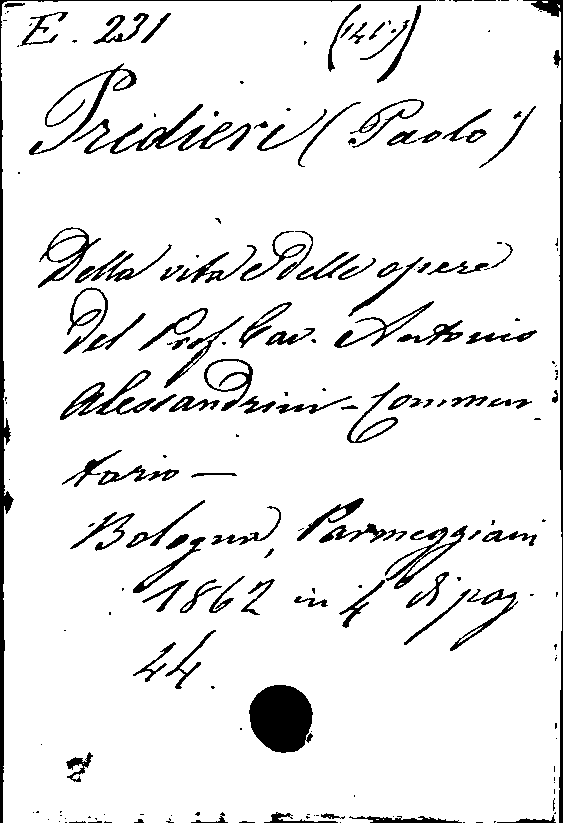 E. 231
Predieri (Paolo)
Della vita e delle opere
del Prof. Cav. Antonio
Alessandrini - Commen
tario —
Bologna, Parmeggiani
1862 in 4 di pag.
44.